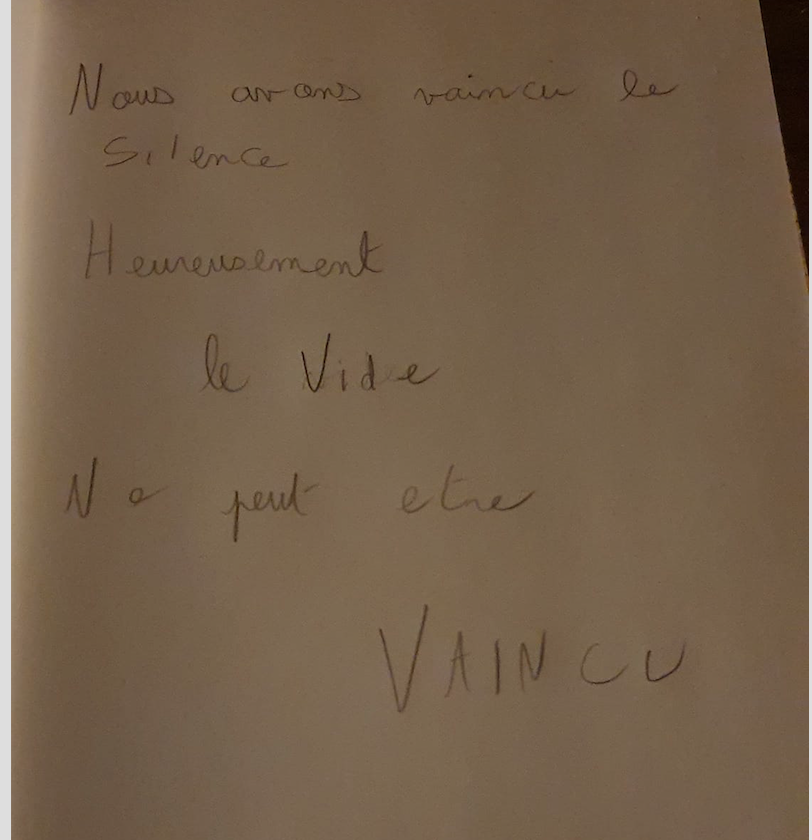 Nous avons vaincu le
Silence
Heureusement
le Vide
Ne peut etre
VAINCU